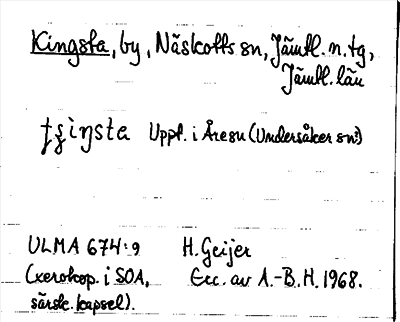 Kingsta, by, Näskotts sn, Jämtl. n. tg,
Jämtl. län
ʈʂiŋsta Uppt. i Åresn (Undersåker sn?)
ULMA 674:9 H. Geijer
(xerokop. i SOA, Exc. av A.-B. H. 1968.
särsk. kapsel).